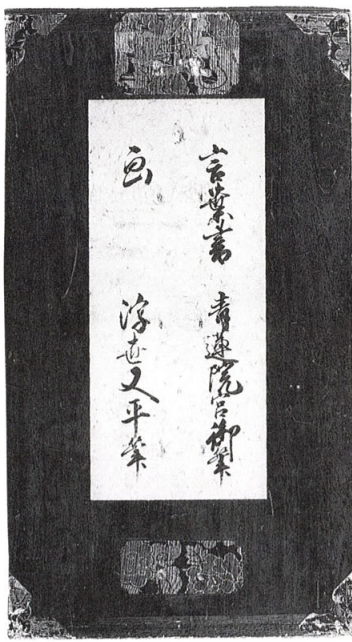 言葉書 青蓮院宮御筆
画 浮世又平筆